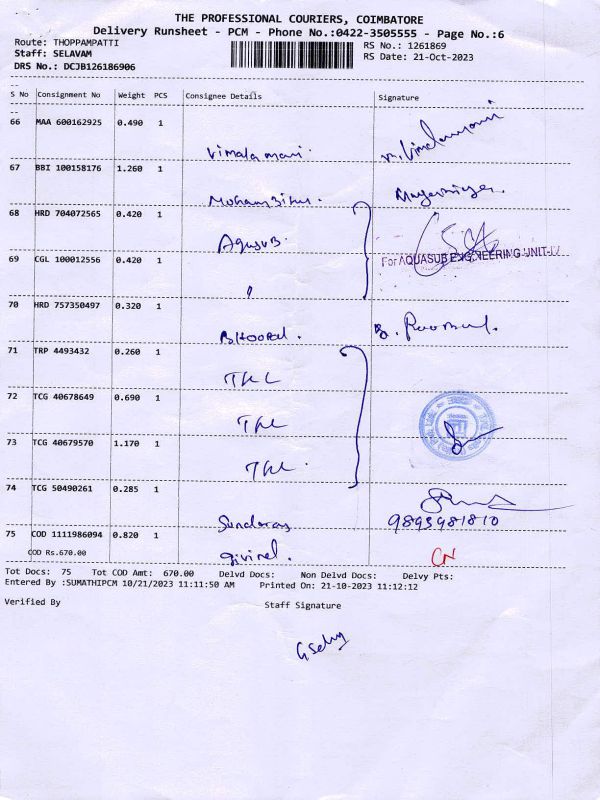 THE PROFESSIONAL COURIERS, COIMBATORE
Delivery Runsheet - PCM - Phone No.:0422-3505555 - Page No.:6
Route: THOPPAMPATTI
RS No.: 1261869
Staff: SELAVAM
RS Date: 21-Oct-2023
DRS No.: DCJB126186906
S No Consignment No Weight PCS Consignee Details Signature
66 MAA 600162925 0.490 1
Vimala mani.
67 BBI 100158176 1.260 1
68 HRD 704072565 0.420 1
Aqusub.
69 CGL 100012556 0.420 1
"
For AQUASUB ENGINEERING UNIT-IV
70 HRD 757350497 0.320 1
Bhoopal.
71 TRP 4493432 0.260 1
TKL
72 TCG 40678649 0.690 1
TKL
73 TCG 40679570 1.170 1
TKL.
74 TCG 50490261 0.285 1
Sundaraj
9893981810
75 COD 1111986094 0.820 1
COD Rs.670.00
CN
Tot Docs: 75 Tot COD Amt: 670.00 Delvd Docs: Non Delvd Docs: Delvy Pts:
Entered By :SUMATHIPCM 10/21/2023 11:11:50 AM Printed On: 21-10-2023 11:12:12
Verified By
Staff Signature